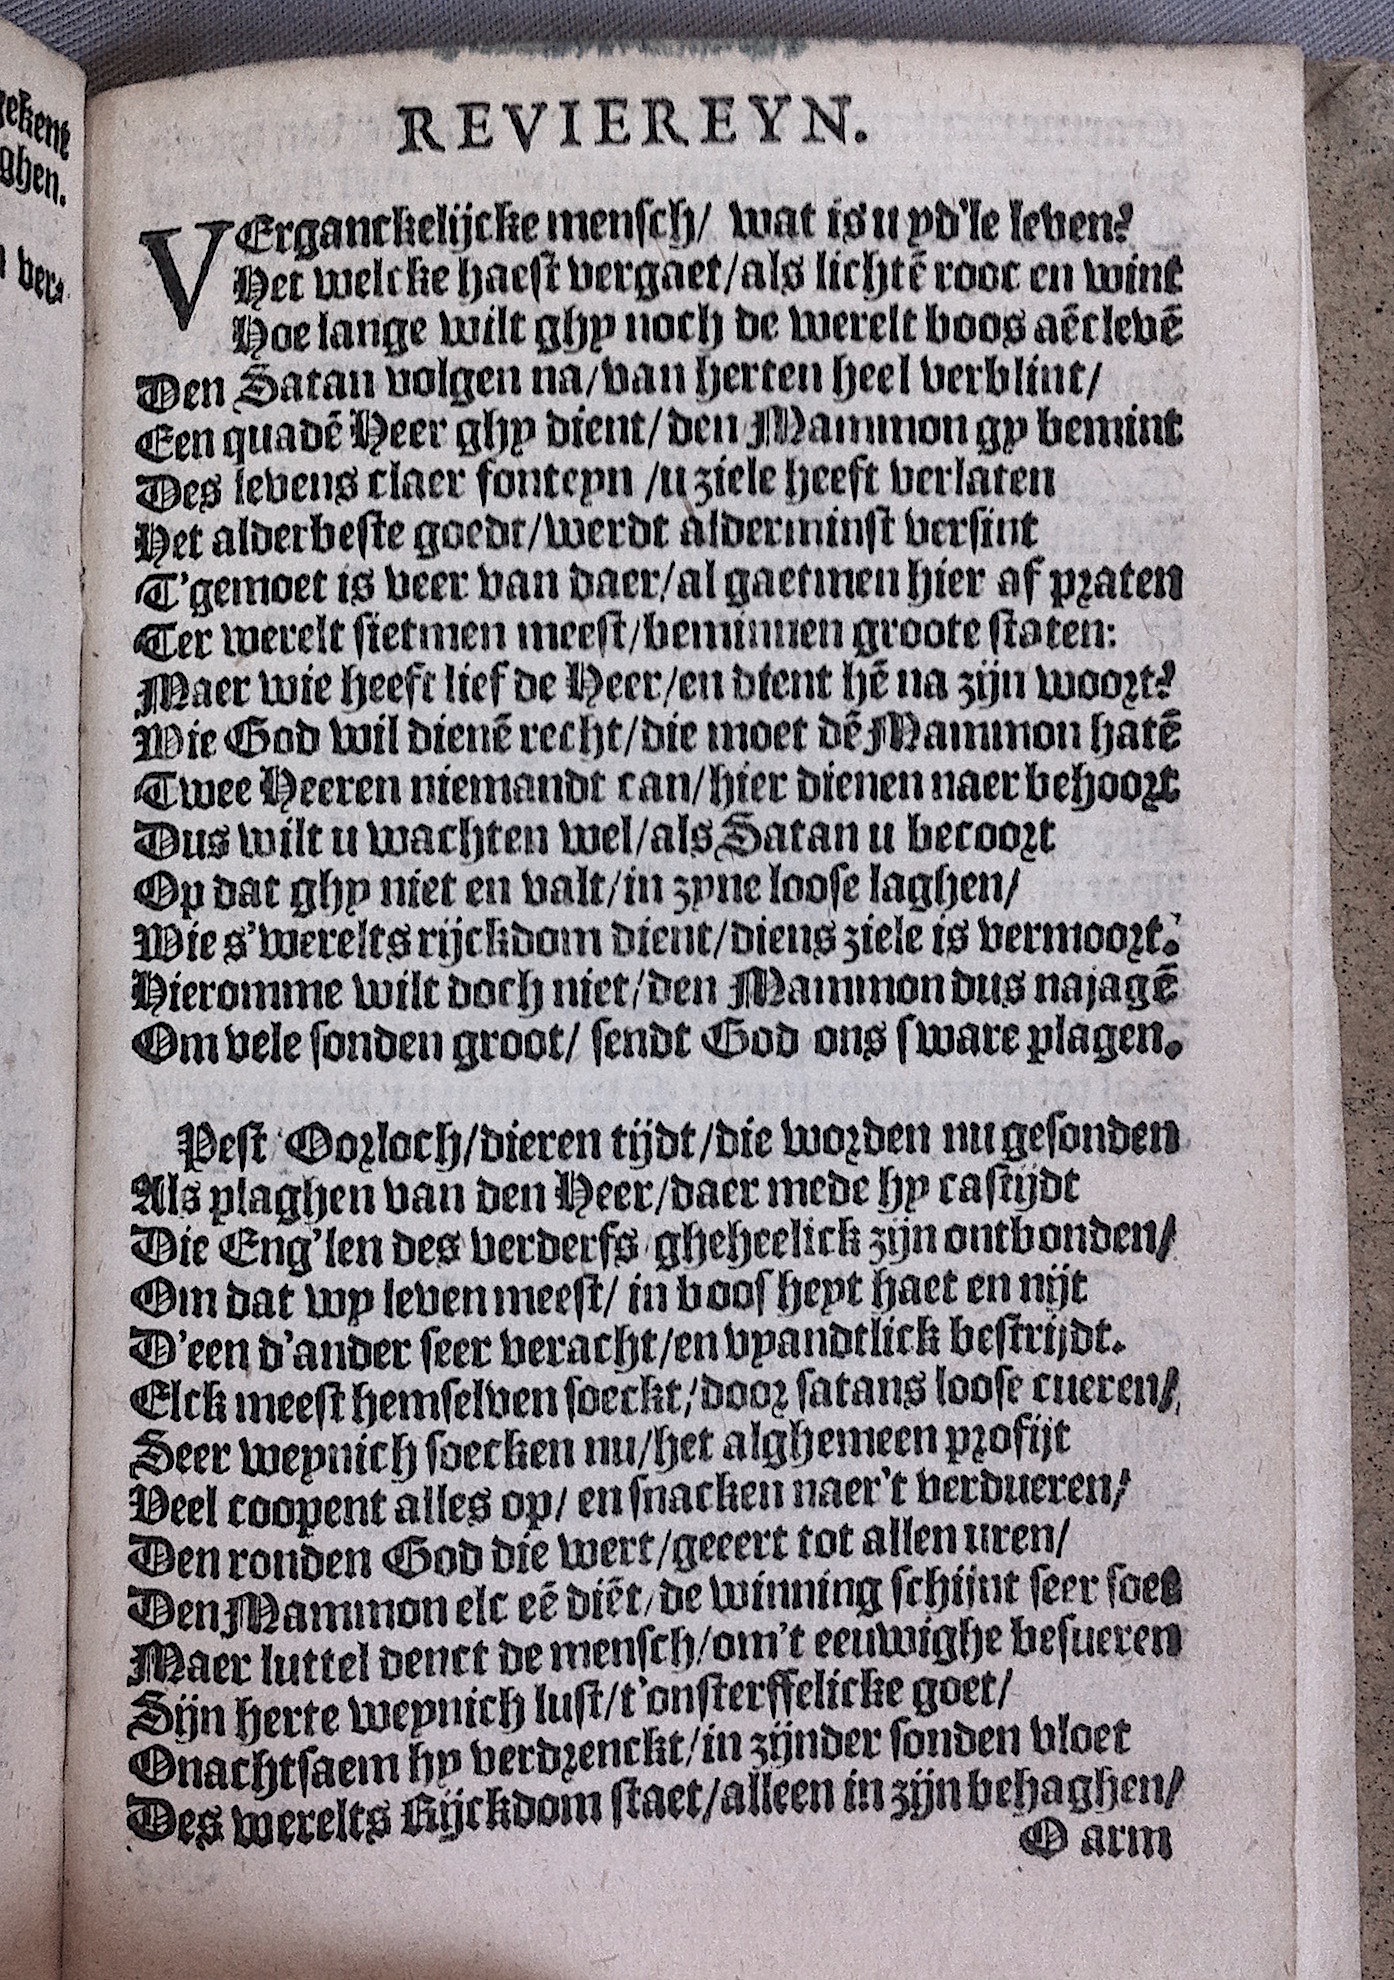 gekent
ghen.
ver-
REVIEREYN.
VErganckelijcke mensch/ wat is u yd'le leven?
Het welcke haest vergaet/als lichtē rooc en wint
Hoe lange wilt ghy noch de werelt boos aēclevē
Den Satan volgen na/van herten heel verblint/
Een quadē Heer ghy dient/den Mammon gy bemint
Des levens claer fonteyn /u ziele heeft verlaten
Het alderbeste goedt/werdt alderminst versint
T'gemoet is veer van daer/al gaetmen hier af praten
Ter werelt sietmen meest/beminnen groote staten:
Maer wie heeft lief de Heer/en dient hē na zijn woort?
Wie God wil dienē recht/die moet dē Mammon hatē
Twee Heeren niemandt can/hier dienen naer behoort
Dus wilt u wachten wel/als Satan u becoort
Op dat ghy niet en valt/in zyne loose laghen/
Wie s'werelts rijckdom dient/diens ziele is vermoort.
Hieromme wilt doch niet/den Mammon dus najagē
Om vele sonden groot/ sendt God ons sware plagen.
Pest Oorloch/dieren tijdt/die worden nu gesonden
Als plaghen van den Heer/daer mede hy castijdt
Die Eng'len des verderfs gheheelick zijn ontbonden/
Om dat wy leven meest/ in boosheyt haet en nijt
D'een d'ander seer veracht/en vyandtlick bestrijdt.
Elck meest hemselven soeckt/door satans loose cueren/
Seer weynich soecken nu/het alghemeen profijt
Veel coopent alles op/ en snacken naer't verdueren/
Den ronden God die wert/geeert tot allen uren/
Den Mammon elc eē diēt/de winning schijnt seer soet
Maer luttel denct de mensch/om't eeuwighe besueren
Sijn herte weynich lust/t'onsterffelicke goet/
Onachtsaem hy verdrenckt/in zijnder sonden vloet
Des werelts Rijckdom staet/alleen in zijn behaghen/
O arm